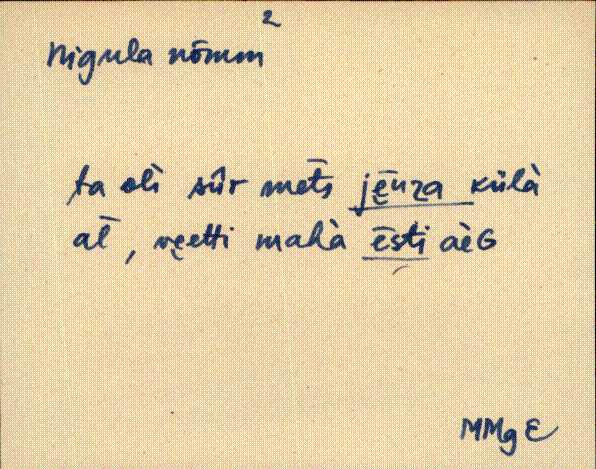 Nigula nõmm²
ta oli sûr met̄s jē̮nza külà
al̄, ve̮etti mahà ēsti aèG
MMg E